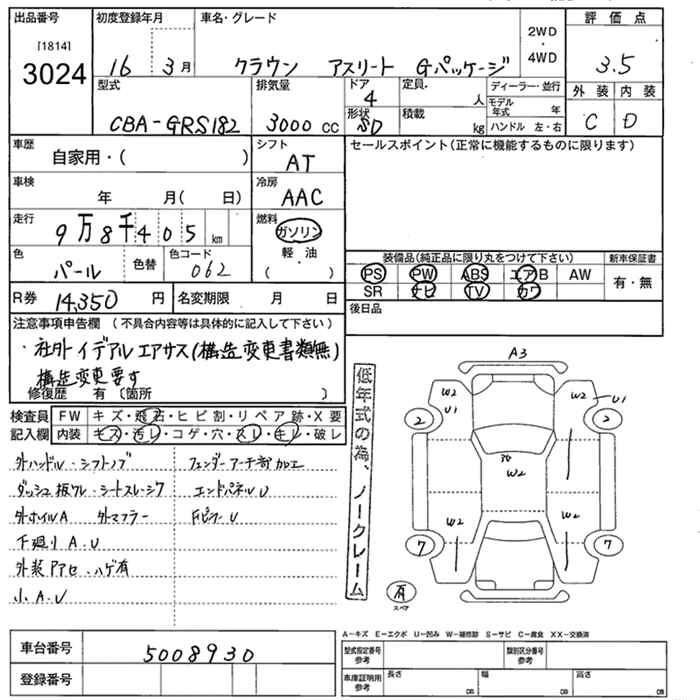 出品番号 初度登録年月 車名・グレード 2WD・4WD 評価点
[1814]
3024 16 3月 クラウン アスリート Gパッケージ 3.5
型式 排気量 ドア 4 定員 人 ディーラー・並行 外装 内装
モデル年式 年
CBA-GRS182 3000cc 形状 SD 積載 kg ハンドル 左・右 C D
車歴 シフト セールスポイント(正常に機能するものに限ります)
自家用・( ) AT
車検 冷房
年 月( 日) AAC
走行 燃料
9万8千405km ガソリン
色 色替 色コード 軽・油 装備品(純正品に限り丸をつけて下さい) 新車保証書
パール 062 ( ) PS PW ABS エアB AW 有・無
SR ナビ TV カワ
R券 14,350円 名変期限 月 日 後日品
注意事項申告欄 (不具合内容等は具体的に記入して下さい)
・社外イデアルエアサス(構造変更書類無)
構造変更要す
修復歴 有〔箇所 〕
検査員 FW キズ・飛石・ヒビ割・リペア跡・X要
記入欄 内装 キズ・汚レ・コゲ・穴・スレ・キレ・破レ
外ハンドル・シフトノブ フェンダーアーチ部加工
ダッシュ板ワレ・シートスレシワ エンドパネルU
外ホイルA 外マフラー FピラーU
下廻りA.U
外装Pアセ・ハゲ有
小.A.U
低年式の為、ノークレーム
A3
W2 W2
U1 U1
2 2
W2
W2 W2
7 7
有
スペア
A-キズ E-エクボ U-凹み W-補修跡 S-サビ C-腐食 XX-交換済
車台番号 5008930 型式指定番号 参考 類別区分番号 参考
登録番号 車庫証明用 参考 長さ cm 幅 cm 高さ cm